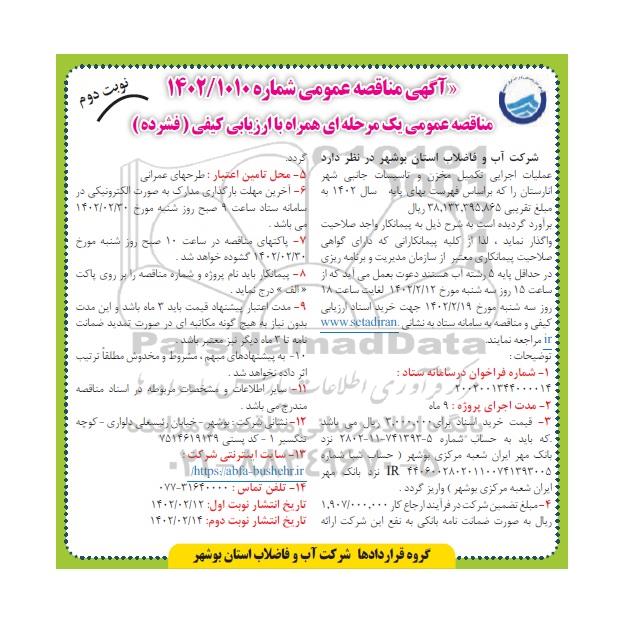 نوبت دوم
«آگهی مناقصه عمومی شماره ۱۴۰۲/۱۰۱۰
مناقصه عمومی یک مرحله ای همراه با ارزیابی کیفی ( فشرده )
شرکت آب و فاضلاب استان بوشهر در نظر دارد
عملیات اجرایی تکمیل مخزن و تاسیسات جانبی شهر
انارستان را که براساس فهرست بهای پایه سال ۱۴۰۲ به
مبلغ تقریبی ۳۸,۱۳۲,۳۹۵,۸۶۵ ریال
برآورد گردیده است به شرح ذیل به پیمانکار واجد صلاحیت
واگذار نماید ، لذا از کلیه پیمانکارانی که دارای گواهی
صلاحیت پیمانکاری معتبر از سازمان مدیریت و برنامه ریزی
در حداقل پایه ۵ رشته آب هستند دعوت بعمل می آید که از
ساعت ۱۵ روز سه شنبه مورخ ۱۴۰۲/۲/۱۲ لغایت ساعت ۱۸
روز سه شنبه مورخ ۱۴۰۲/۲/۱۹ جهت خرید اسناد ارزیابی
کیفی و مناقصه به سامانه ستاد به نشانی www.setadiran.
ir مراجعه نمایند.
توضیحات :
۱- شماره فراخوان درسامانه ستاد :
۲۰۰۲۰۰۱۳۴۴۰۰۰۰۱۴
۲- مدت اجرای پروژه : ۹ ماه
۳- قیمت خرید اسناد برای ۳,۰۰۰,۰۰۰ ریال می باشد
که باید به حساب شماره ۵-۷۴۱۳۹۳-۱۱-۲۸۰۲ نزد
بانک مهر ایران شعبه مرکزی بوشهر ( حساب شبا شماره
IR ۴۴۰۶۰۰۲۸۰۲۰۱۱۰۰۷۴۱۳۹۳۰۰۵ نزد بانک مهر
ایران شعبه مرکزی بوشهر ) واریز گردد .
۴- مبلغ تضمین شرکت در فرآیند ارجاع کار ۱,۹۰۷,۰۰۰,۰۰۰
ریال به صورت ضمانت نامه بانکی به نفع این شرکت ارائه
گردد.
۵- محل تامین اعتبار : طرحهای عمرانی
۶- آخرین مهلت بارگذاری مدارک به صورت الکترونیکی در
سامانه ستاد ساعت ۹ صبح روز شنبه مورخ ۱۴۰۲/۰۲/۳۰
می باشد .
۷- پاکتهای مناقصه در ساعت ۱۰ صبح روز شنبه مورخ
۱۴۰۲/۰۲/۳۰ گشوده خواهد شد .
۸- پیمانکار باید نام پروژه و شماره مناقصه را بر روی پاکت
« الف » درج نماید .
۹- مدت اعتبار پیشنهاد قیمت باید ۳ ماه باشد و این مدت
بدون نیاز به هیچ گونه مکاتبه ای در صورت تمدید ضمانت
نامه تا ۳ ماه دیگر نیز معتبر باشد .
۱۰- به پیشنهادهای مبهم ، مشروط و مخدوش مطلقاً ترتیب
اثر داده نخواهد شد .
۱۱- سایر اطلاعات و مشخصات مربوطه در اسناد مناقصه
مندرج می باشد .
۱۲- نشانی شرکت : بوشهر - خیابان رئیسعلی دلواری - کوچه
تنگسیر ۱ - کد پستی ۷۵۱۴۶۱۹۱۳۹
۱۳- سایت اینترنتی شرکت :
https://abfa-bushehr.ir/
۱۴- تلفن تماس : ۳۱۶۴۰۰۰۰-۰۷۷
تاریخ انتشار نوبت اول: ۱۴۰۲/۰۲/۱۲
تاریخ انتشار نوبت دوم: ۱۴۰۲/۰۲/۱۴
گروه قراردادها شرکت آب و فاضلاب استان بوشهر